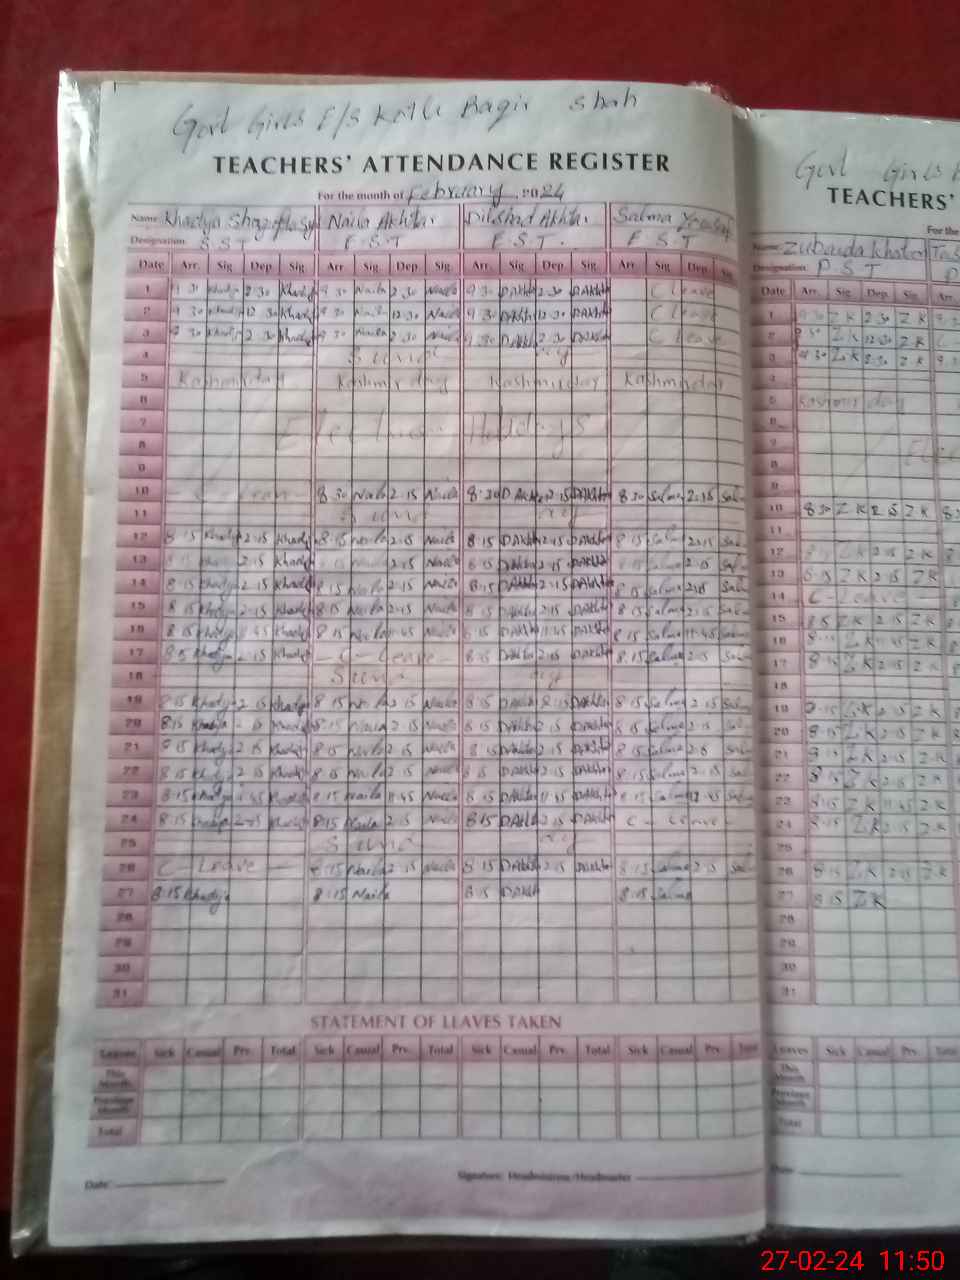 Govt Girls E/S Kotli Baqir Shah
TEACHERS' ATTENDANCE REGISTER
For the month of February 2024
Name Khadija Naila Akhtar Dilshad Akhtar Salma
Designation S.S.T E.S.T E.S.T. E.S.T
Date Arr. Sig Dep Sig Arr Sig Dep Sig Arr Sig Dep Sig Arr Sig Dep. Sig
1 9 30 Khadija 2 30 Khadija 9 30 Naila 2 30 Naila 9 30 DAkhtar 2 30 DAkhtar C Leave
2 9 30 Khadija 12 30 Khadija 9 30 Naila 12 30 Naila 9 30 DAkhtar 12 30 DAkhtar C Leave
3 9 30 Khadija 2 30 Khadija 9 30 Naila 2 30 Naila 9 30 DAkhtar 2 30 DAkhtar C Leave
4 Sunday
5 Kashmir day Kashmir day Kashmir day Kashmir day
6
7 Election Holidays
8
9
10 - C - Leave - 8 30 Naila 2 15 Naila 8 30 DAkhtar 2 15 DAkhtar 8 30 Salma 2 15 Salma
11 Sunday
12 8 15 Khadija 2 15 Khadija 8 15 Naila 2 15 Naila 8 15 DAkhtar 2 15 DAkhtar 8 15 Salma 2 15 Salma
13 8 15 2 15 Khadija Naila 2 15 Naila 8 15 DAkhtar 2 15 DAkhtar 8 15 Salma 2 15 Salma
14 8 15 Khadija 2 15 Khadija 8 15 Naila 2 15 Naila 8 15 DAkhtar 2 15 DAkhtar 8 15 Salma 2 15 Salma
15 8 15 Khadija 2 15 Khadija 8 15 Naila 2 15 Naila 8 15 DAkhtar 2 15 DAkhtar 8 15 Salma 2 15 Salma
16 8 15 Khadija 11 45 Khadija 8 15 Naila 11 45 Naila 8 15 DAkhtar 11 45 DAkhtar 8 15 Salma 11 45 Salma
17 8 15 Khadija 2 15 Khadija - C - Leave - 8 15 DAkhtar 2 15 DAkhtar 8 15 Salma 2 15 Salma
18 Sunday
19 8 15 Khadija 2 15 Khadija 8 15 Naila 2 15 Naila 8 15 DAkhtar 2 15 DAkhtar 8 15 Salma 2 15 Salma
20 8 15 Khadija 2 15 Khadija 8 15 Naila 2 15 Naila 8 15 DAkhtar 2 15 DAkhtar 8 15 Salma 2 15 Salma
21 8 15 Khadija 2 15 Khadija 8 15 Naila 2 15 Naila 8 15 DAkhtar 2 15 DAkhtar 8 15 Salma Salma
22 8 15 Khadija 2 15 Khadija 8 15 Naila 2 15 Naila 8 15 DAkhtar 2 15 DAkhtar 8 15 Salma 2 15 Salma
23 8 15 Khadija 11 45 Khadija 8 15 Naila 11 45 Naila 8 15 DAkhtar 11 45 DAkhtar 8 15 Salma 11 45 Salma
24 8 15 Khadija 2 15 Khadija 8 15 Naila 2 15 Naila 8 15 DAkhtar 2 15 DAkhtar C - Leave -
25 Sunday
26 C - Leave - 8 15 Naila 2 15 Naila 8 15 DAkhtar 2 15 DAkhtar 8 15 Salma 2 15 Salma
27 8 15 Khadija 8 15 Naila 8 15 DAkhtar 8 15 Salma
28
29
30
31
STATEMENT OF LEAVES TAKEN
Leaves Sick Casual Prv. Total Sick Casual Prv. Total Sick Casual Prv. Total Sick Casual Prv. Total
This Month
Previous Month
Total
Date: Signature: Headmistress/Headmaster
Govt Girls
TEACHERS'
For the
Name Zubaida Khatoon
Designation P S T
Date Arr. Sig Dep. Sig. Arr.
1 9 30 Z K 2 30 Z K
2 9 30 Z K 12 30 Z K
3 9 30 Z K 2 30 Z K
4
5 Kashmir day
6
7
8
9
10 8 30 Z K 2 15 Z K
11
12 8 15 Z K 2 15 Z K
13 8 15 Z K 2 15 Z K
14 C - Leave -
15 8 15 Z K 2 15 Z K
16 8 15 Z K 11 45 Z K
17 8 15 Z K 2 15 Z K
18
19 8 15 Z K 2 15 Z K
20 8 15 Z K 2 15 Z K
21 8 15 Z K 2 15 Z K
22 8 15 Z K 2 15 Z K
23 8 15 Z K 11 45 Z K
24 8 15 Z K 2 15 Z K
25
26 8 15 Z K 2 15 Z K
27 8 15 Z K
28
29
30
31
Leaves Sick Casual Prv. Total
This Month
Previous Month
Total
Date
27-02-24 11:50